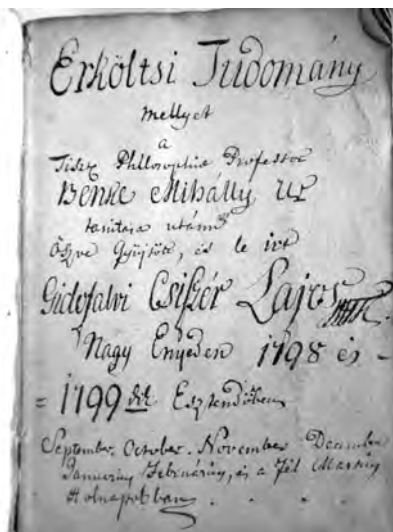 Erköltsi Tudomány
mellyet
a
Tisz. Philosophia Professor
Benke Mihálly Ur
tanitása utánn
Öszve Gyüjtött, és le irt
Gidofalvi Csiszér Lajos
Nagy Enyeden 1798 és -
= 1799dik Esztendőben
September. October. November December
Januarius Februárius, és a Fél Martius
Holnapokban